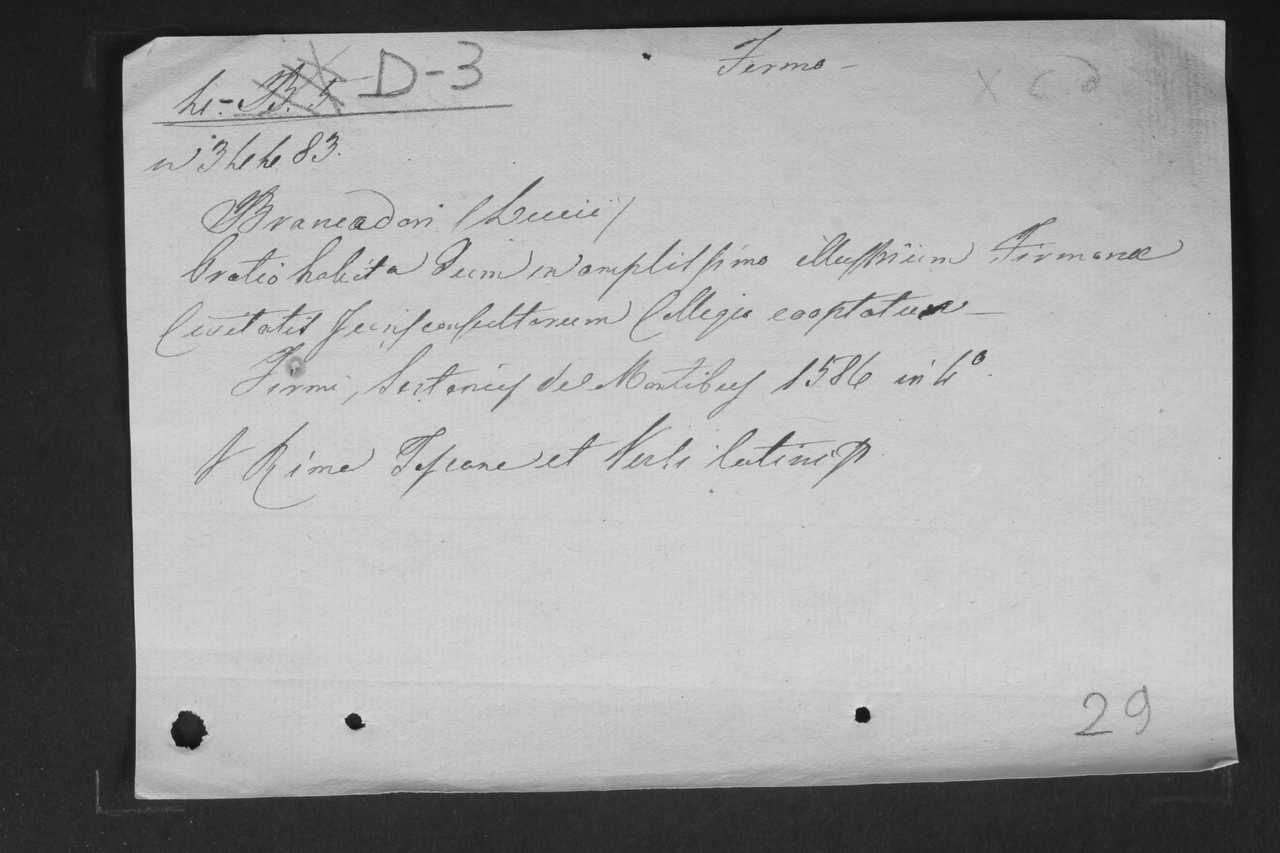 Fermo -
4.- B. 5 D-3
n° 34483.
Brancadori (Lucii)
Oratio habita dum in amplissimo illustrium Firmanæ
Civitatis Jurisconsultorum Collegio cooptatur -
Firmi, Sertorius de Montibus 1586 in 4°.
Rime Toscane et Versi latini
29